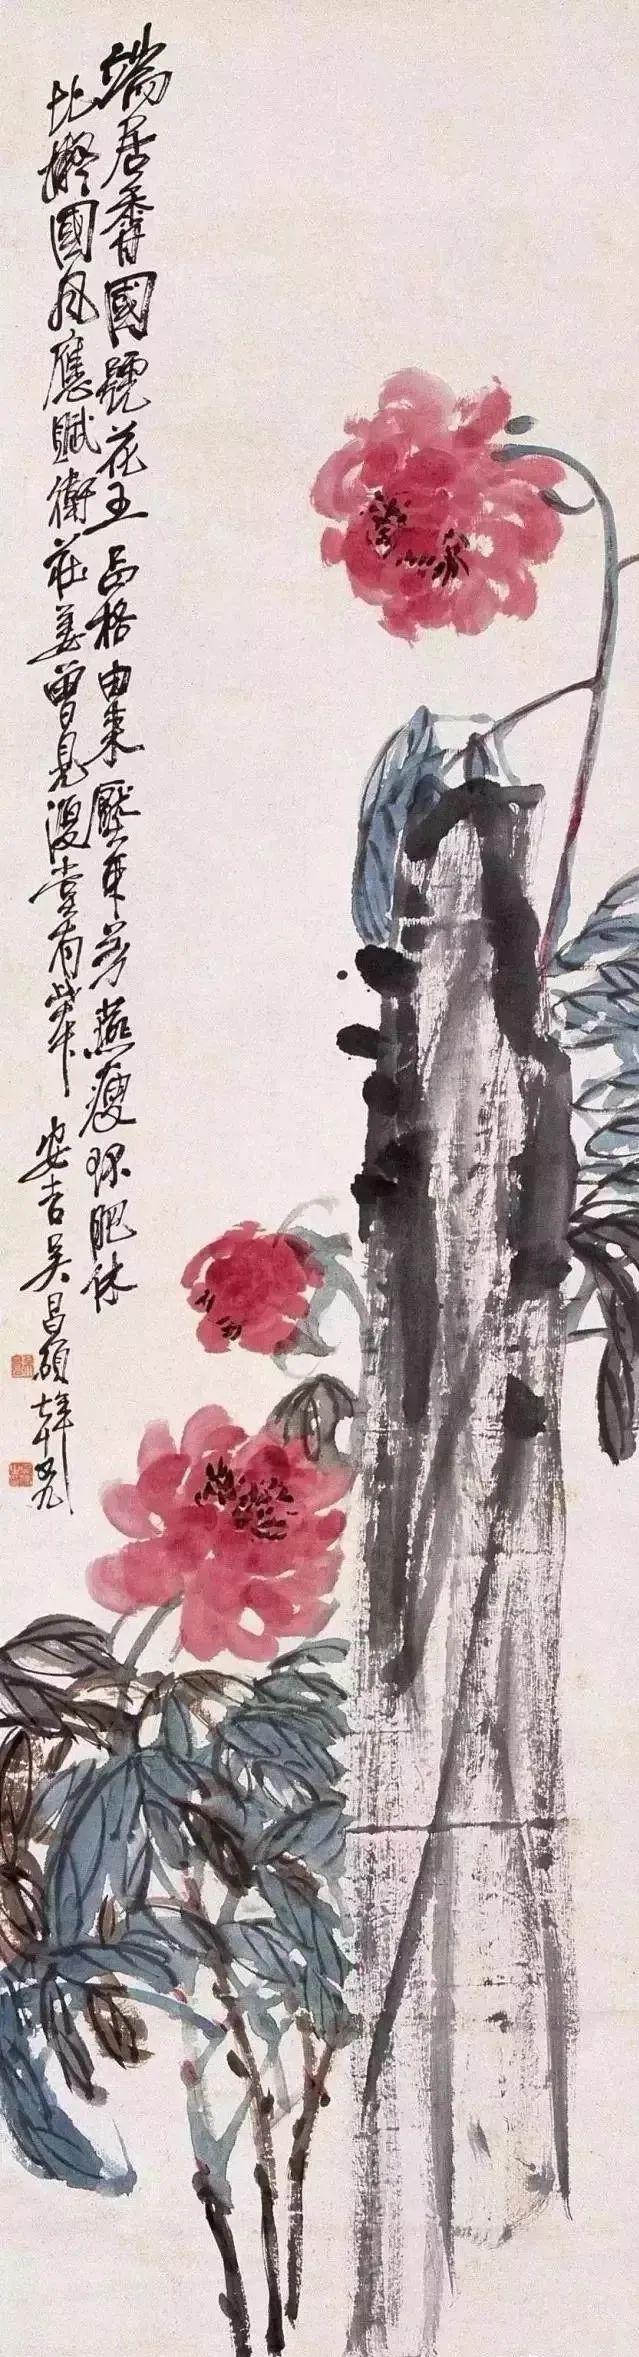 端居香國號花王品格由來壓眾芳燕瘦環肥休
比擬國風應賦衛莊姜曾見復堂有 安吉吳昌碩年七十九